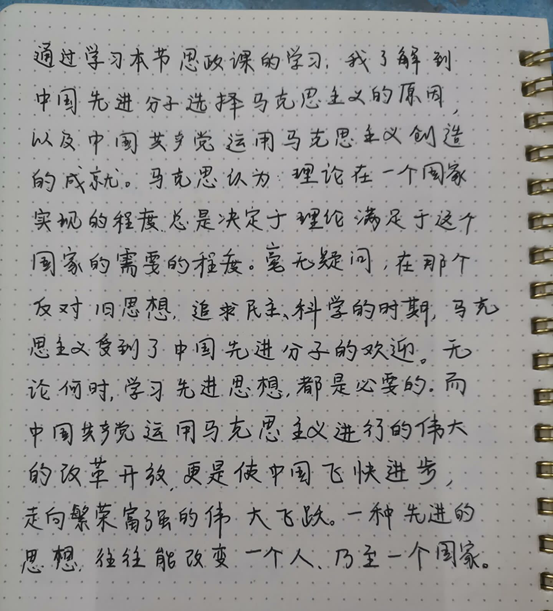 通过学习本节思政课的学习，我了解到
中国先进分子选择马克思主义的原因，
以及中国共产党运用马克思主义创造
的成就。马克思认为 理论在一个国家
实现的程度总是决定于理论满足于这个
国家的需要的程度。毫无疑问，在那个
反对旧思想，追求民主、科学的时期，马克
思主义受到了中国先进分子的欢迎。无
论何时，学习先进思想，都是必要的。而
中国共产党运用马克思主义进行的伟大
的改革开放，更是使中国飞快进步，
走向繁荣富强的伟大飞跃。一种先进的
思想，往往能改变一个人、乃至一个国家。